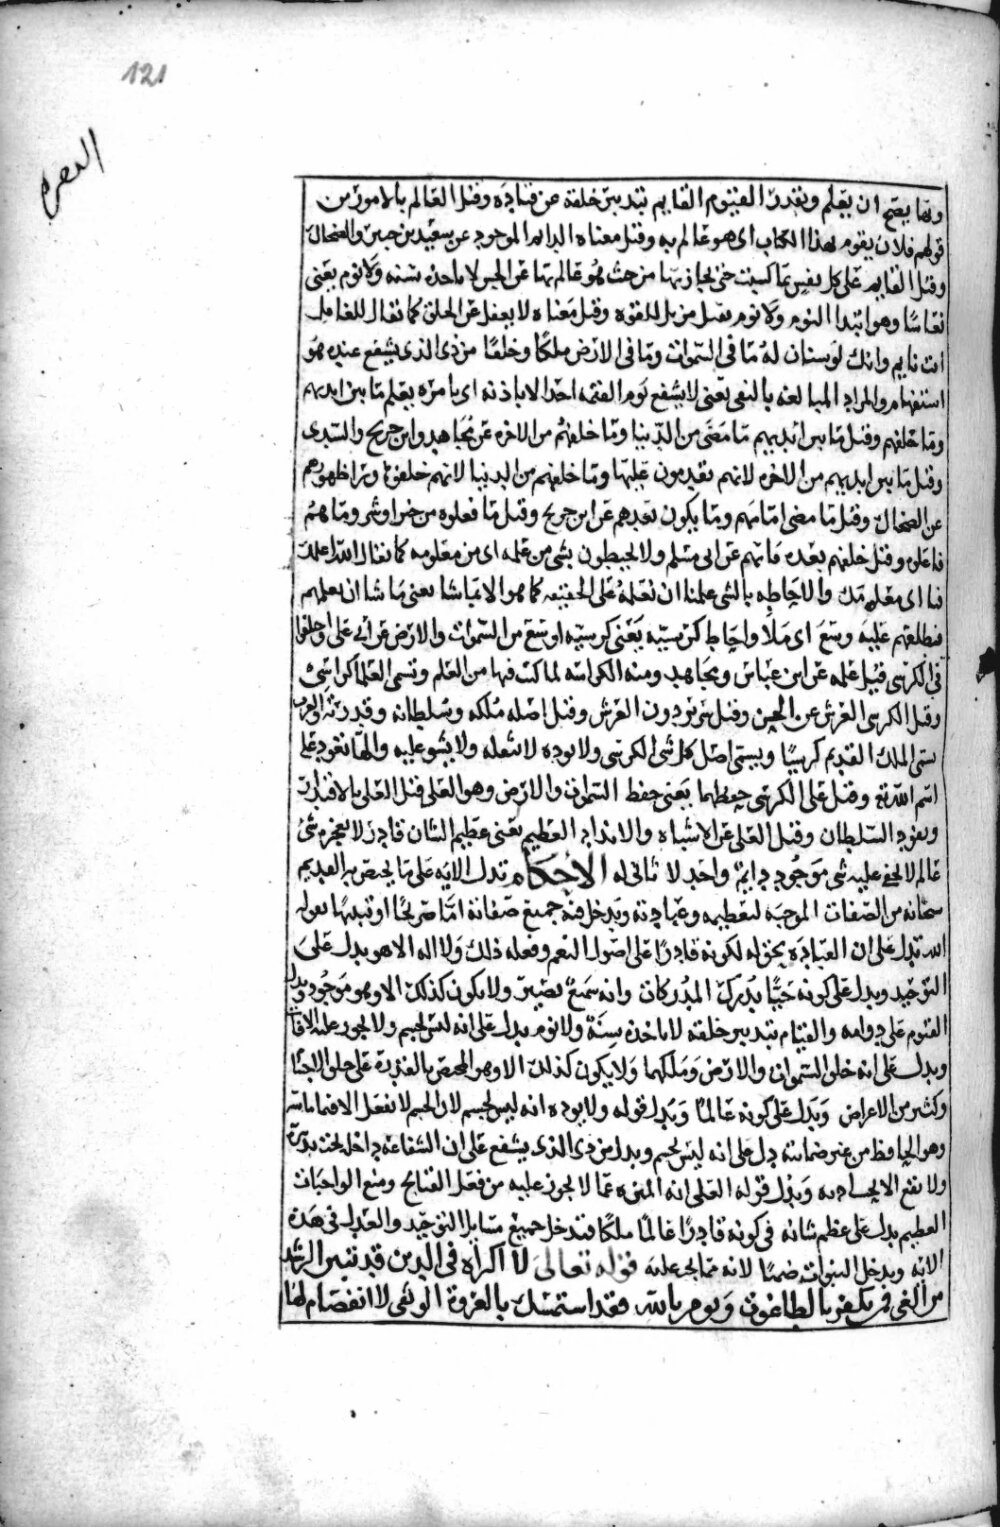 121
البقرة
وبما يصح ان يعلم ويقدر القيوم القايم بتدبير خلقه عن قتاده وقيل العالم بالامور من
قولهم فلان يقوم بهذا الكتاب اى هو عالم به وقيل معناه الدايم الموجود عن سعيد بن جبير والضحاك
وقيل القايم على كل نفس بما كسبت حتى يجازيها من حيث هو عالم بها عن الحسن لا ياخذه سنه ولا نوم يعنى
نعاسا وهو ابتدا النوم ولا نوم ثقيل مزيل للقوه وقيل معناه لا يغفل عن الخلق كما يقال للغافل
انت نايم وانك لوسنان له ما فى السموات وما فى الارض ملكا وخلقا من ذى الذى يشفع عنده هو
استفهام والمراد المبالغه بالنفى يعنى لا يشفع يوم القيمه احدا الا باذنه اى بامره يعلم ما بين ايديهم
وما خلفهم وقيل ما بين ايديهم ما مضى من الدنيا وما خلفهم من الاخره عن مجاهد وابن جريج والسدى
وقيل ما بين ايديهم من الاخره لانهم يقدمون عليها وما خلفهم من الدنيا لانهم خلفوها ورا ظهورهم
عن الضحاك وقيل ما مضى امامهم وما يكون بعدهم عن ابن جريج وقيل ما فعلوه من خير او شر وما هم
فاعلوه وقيل خلفهم بعده فاتهم عن ابى مسلم ولا يحيطون بشى من علمه اى من معلومه كما يقال اللهم اغفر علمك
فينا اى معلومك والاحاطه بالشى علما ان تعلمه على الحقيقه كما هو الا بما شا يعنى ما شا ان يعلمهم
فيطلعهم عليه وسع اى ملا واحاط كرسيه يعنى كرسيه اوسع من السموات والارض عن ابى على واختلفوا
فى الكرسى قيل علمه عن ابن عباس ومجاهد ومنه الكراسه لما كتب فيها من العلم وتسمى العلما كراسى
وقيل الكرسى العرش عن الحسن وقيل سرير دون العرش وقيل اصله ملكه وسلطانه وقدرته والعرب
يسمى الملك القديم كرسيا ويسمى اصل كل شى الكرسى ولا يوده لا يثقله ولا يشق عليه والها تعود على
اسم الله تع وقيل على الكرسى حفظهما يعنى حفظ السموات والارض وهو العلى قيل العلى بالاقتدار
ونفوذ السلطان وقيل العلى عن الاشباه والانداد العظيم يعنى عظيم الشان قادر لا يعجزه شى
عالم لا يخفى عليه شى موجود دايم واحد لا ثانى له الاحكام تدل الايه على ما يختص به القديم
سبحانه من الصفات الموجبه لتعظيمه وعبادته ويدخل فيه جميع صفاته اما صريحا او تنبيها بقوله
الله تدل على ان العباده يحق له لكونه قادرا على اصول النعم وفعله ذلك ولا اله الا هو يدل على
التوحيد ويدل على كونه حيا يدرك المدركات وانه سميع بصير ولا يكون كذلك الا وهو موجود ويدل
القيوم على دوامه والقيام بتدبير خلقه لا ياخذه سنة ولا نوم يدل على انه ليس بجسم ولا يجوز عليه الافات
ويدل على انه خلق السموات والارض وملكهما ولا يكون كذلك الا وهو المختص بالقدرة على خلق الاجسام
وكثير من الاعراض ويدل على كونه عالما ويدل قوله ولا يوده انه ليس بجسم لان الجسم لا يفعل الا فيما ماسه
وهو الحافظ من غير مماسة دل على انه ليس بجسم ويدل من ذى الذى يشفع على ان الشفاعة داخله تحت تدبيره
ولا يقع الا بحسب اذنه ويدل قوله العلى انه المنزه عما لا يجوز عليه من فعل القبايح ومنع الواجبات
العظيم يدل على عظم شانه فى كونه قادرا عالما ملكا فتدخل جميع مسايل التوحيد والعدل فى هذه
الايه ويدخل النبوات ضمنا لانه مما يجب عليه قوله تعالى لا اكراه فى الدين قد تبين الرشد
من الغى فمن يكفر بالطاغوت ويومن بالله فقد استمسك بالعروة الوثقى لا انفصام لها